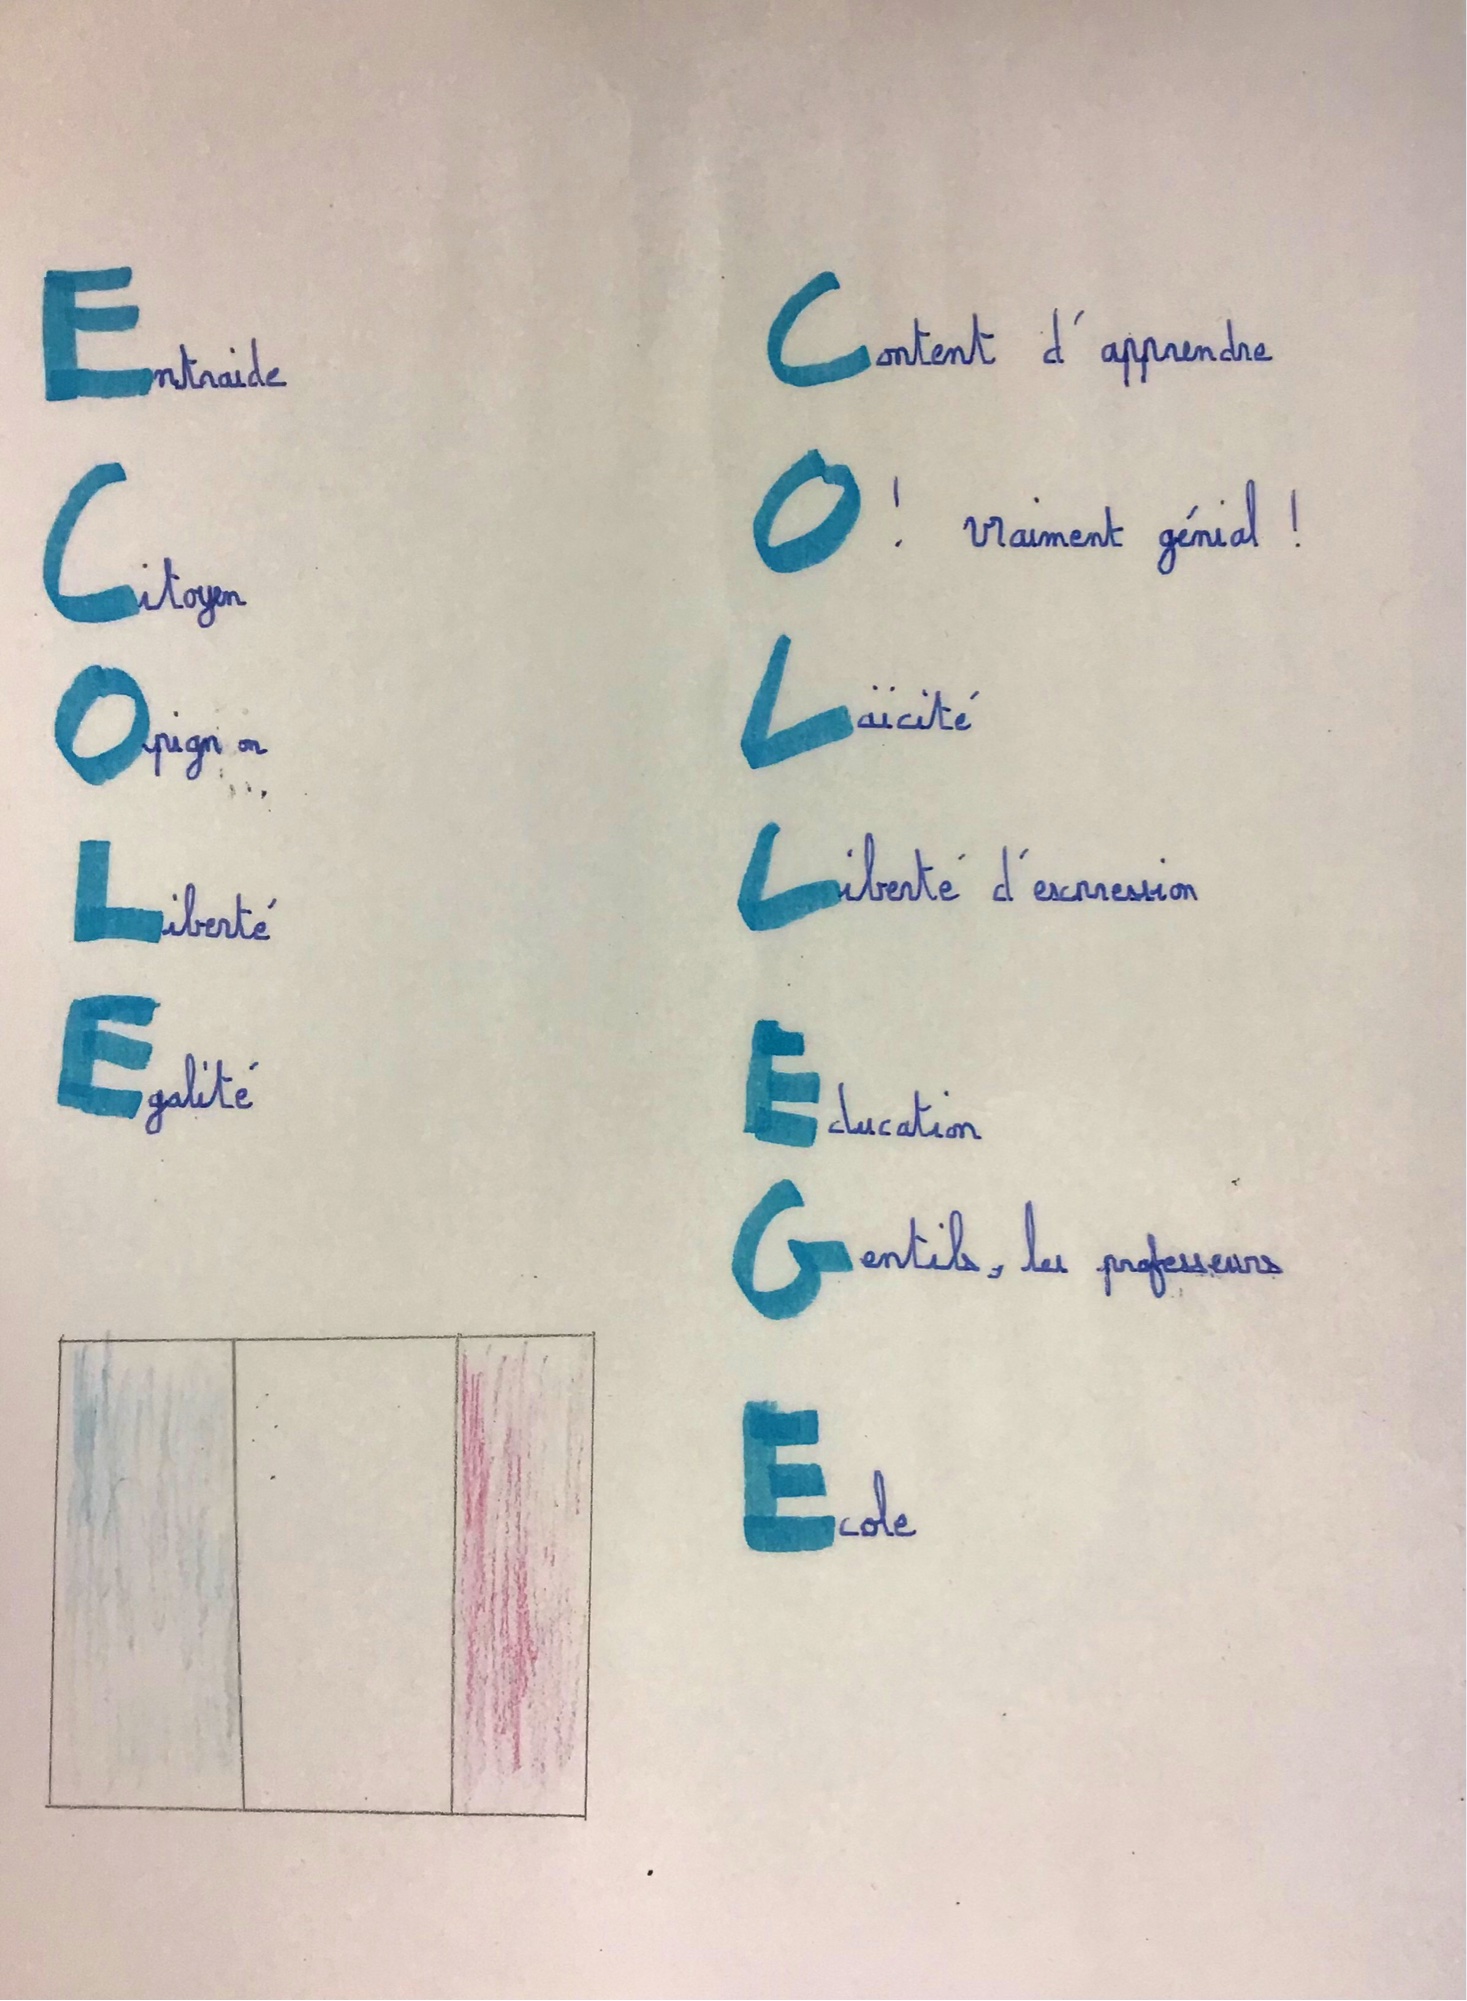 Entraide
Citoyen
Opignon
Liberté
Egalité
Content d'apprendre
O! vraiment génial !
Laïcité
Liberté d'escression
Education
Gentils, les professeurs
Ecole